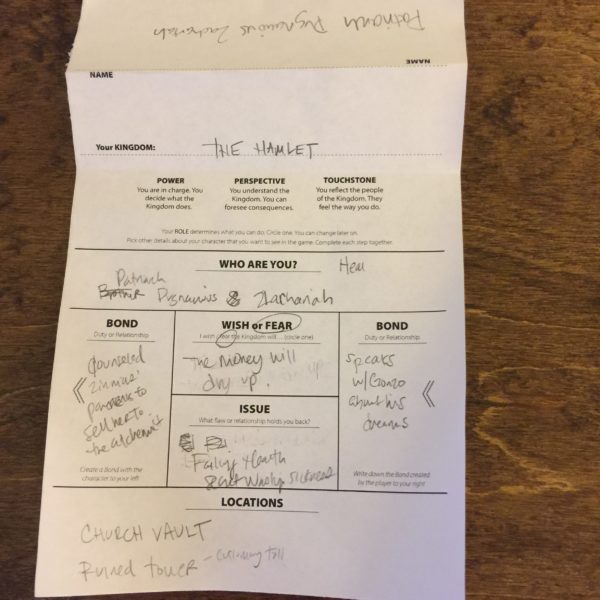 Patriarch Pugnacious Zachariah
NAME
NAME
Your KINGDOM: THE HAMLET
POWER
You are in charge. You
decide what the
Kingdom does.
PERSPECTIVE
You understand the
Kingdom. You can
foresee consequences.
TOUCHSTONE
You reflect the people
of the Kingdom. They
feel the way you do.
Your ROLE determines what you can do. Circle one. You can change later on.
Pick other details about your character that you want to see in the game. Complete each step together.
WHO ARE YOU?
Patriarch
Zachariah
BOND
Duty or Relationship
Counseled
parents to
sell her to
the alchemist
Create a Bond with the
character to your left
WISH or FEAR
I wish / fear the Kingdom will... (circle one)
The money will
dry up.
ISSUE
What flaw or relationship holds you back?
Failing Health
BOND
Duty or Relationship
Speaks
w/Gonzo
about his
dreams
Write down the Bond created
by the player to your right
LOCATIONS
CHURCH VAULT
Ruined tower -